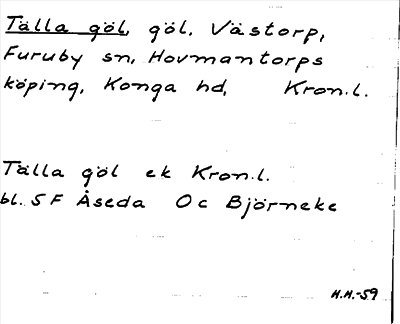 Tälla göl, göl, Västorp,
Furuby sn, Hovmantorps
köping, Konga hd, Kron.l.
Tälla göl ek Kron.l.
bl. 5 F Åseda Oc Björneke
H.H.-59